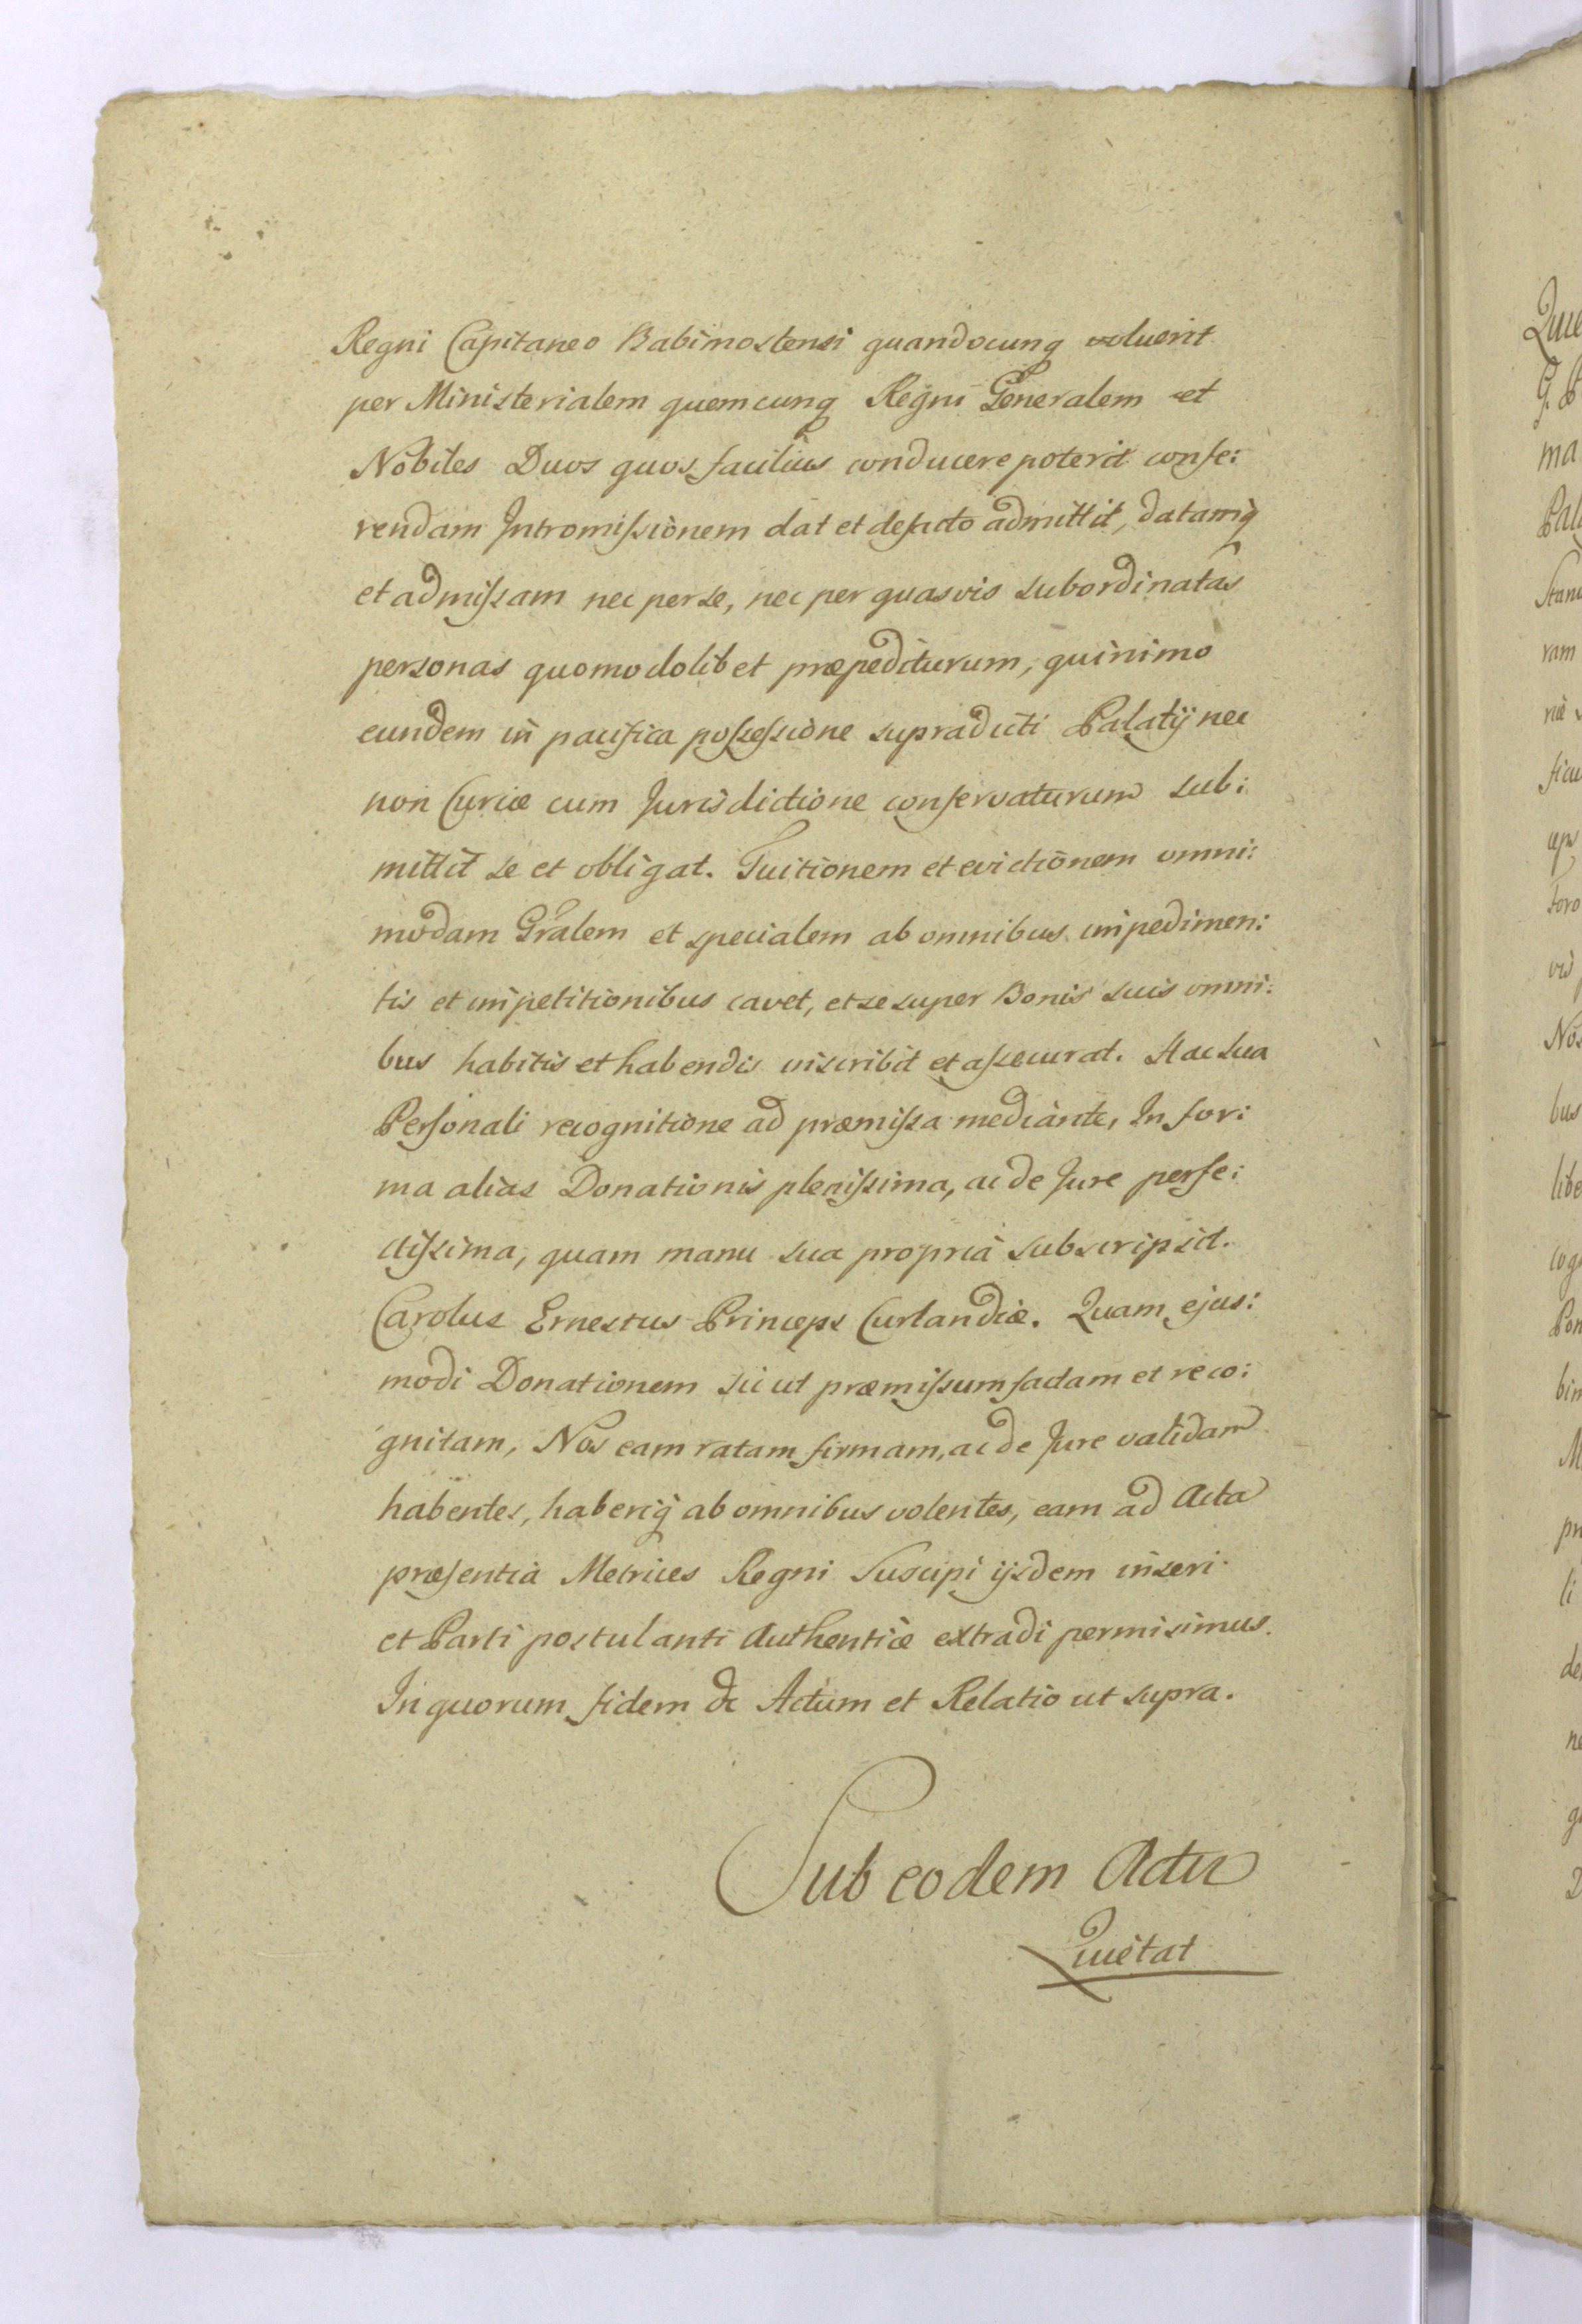 Regni Capitaneo Babimostensi quandocunq voluerit
per Ministerialem quemcunq Regni Generalem et
Nobiles Duos quos facilius conducere poterit confe:
rendam Intromißionem dat et defacto admittit, datamq
et admißam nec per se, nec per quasvis subordinatas
personas quomodolibet præpediturum, quinimo
eundem in pacifica poßeßione supradicti Palatij nec
non Curiæ cum Jurisdictione conservaturum sub:
mittit se et obligat. Tuitionem et evictionem omni:
modam Gralem et specialem ab omnibus impedimen:
tis et impetitionibus cavet, et se super Bonis suis omni:
bus habitis et habendis inscribit et aßecurat. Hac sua
Personali recognitione ad præmißa mediante, In for:
ma alias Donationis plenißima, ac de Jure perfe:
ctißima, quam manu sua propria subscripsit.
Carolus Ernestus Princeps Curlandiæ. Quam ejus:
modi Donationem sic ut præmißum factam et reco:
gnitam, Nos eam ratam firmam, ac de Jure validam
habentes, haberiq ab omnibus volentes, eam ad Acta
præsentia Metrices Regni Suscipi ijsdem inseri
et Parti postulanti Authentice extradi permisimus.
In quorum fidem &c Actum et Relatio ut supra.
Sub eodem Actu
Quietat